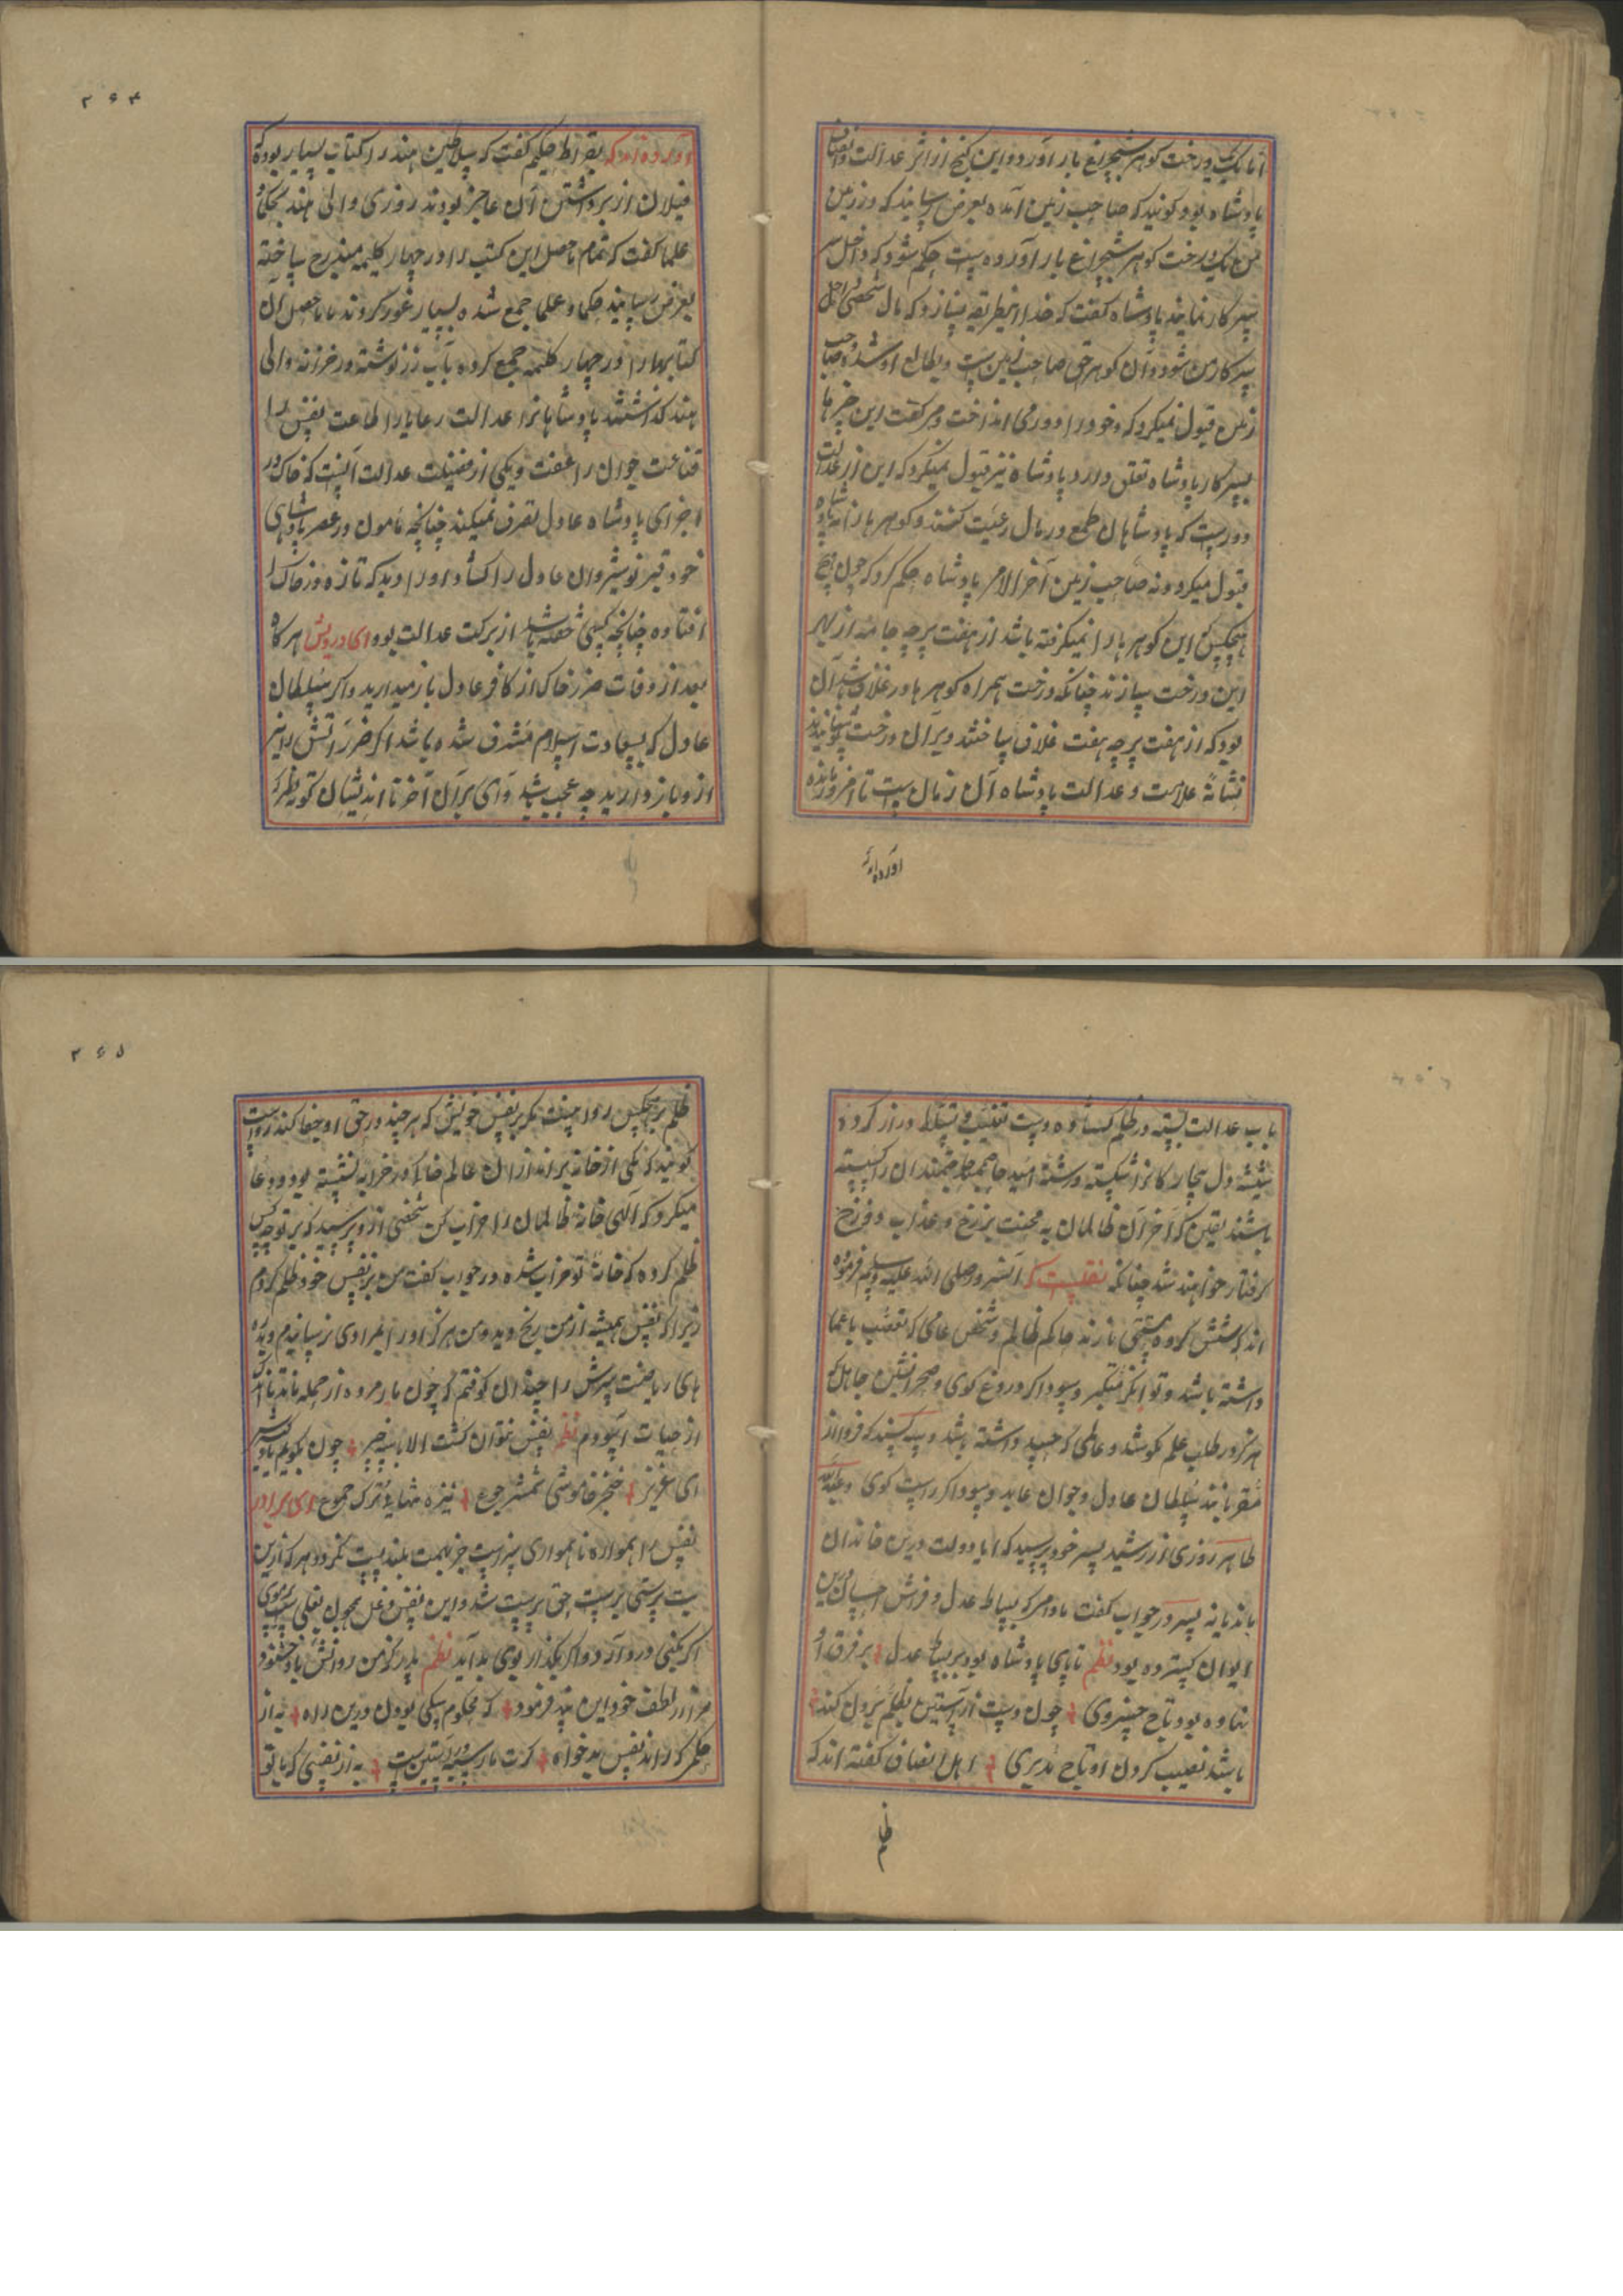 اما یک درخت گوهر شبچراغ بار آورد و این گنج از اثر عدالت و انصاف
پادشاه بود گویند که صاحب زمین آمده بعرض رسانید که در زمین
من یک درخت گوهر شبچراغ بار آورده است حکم شود که داخل سر
سرکار نمایند پادشاه گفت که خدا اینطریقه نسازد که مال شخصی داخل
سرکار من شود و آن گوهر حق صاحب زمین است و بطالع او شده و صاحب
زمین قبول نمیکرد که خود را دور می انداخت و میگفت این چیزها
بسرکار پادشاه تعلق دارد پادشاه نیز قبول نمیکرد که این از عدالت
دور است که پادشاهان طمع در مال رعیت کنند و گوهرها را نه پادشاه
قبول میکرد و نه صاحب زمین آخر الامر پادشاه حکم کرد که چون هیچ
هیچکس این گوهرها را نمیگرفته باشد از هفت پرچه جامه از بهر
این درخت سازند چنانکه درخت همراه گوهرها در غلاف باشد آن
بود که از هفت پرچه هفت غلاف ساختند و بر آن درخت پوشانیدند
نشانهٔ علامت و عدالت پادشاه آن زمان است تا امروز مانده
آورده اند
۲۶۴
آورده اند که بقراط حکیم گفت که سلاطین هند را کتاب بسیار بوده که
فیلان از برداشتن آن عاجز بودند روزی والی هند بحکما و
علما گفت که تمام ماحصل این کتب را در چهار کلیمه مندرج ساخته
بعرض رسانید حکما و علما جمع شده بسیار غور کردند تا ماحصل آن
کتابها را در چهار کلیمه جمع کرده بآب زر نوشته در خزانه والی
هند گذاشتند پادشاهانرا عدالت رعایا را اطاعت نفس را
قناعت جوان را عفت و یکی از فضیلت عدالت آنست که خاک در
اجزای پادشاه عادل تصرف نمیکند چنانچه مامون در عصر پادشاهی
خود قبر نوشیروان عادل را گشاد او را دید که تازه در خاک
افتاده چنانچه کسی خفته باشد از برکت عدالت بود ای درویش هر گاه
بعد از وفات ضرر خاک از کافر عادل باز میدارید و اگر سلطان
عادل که بسعادت اسلام مشرف شده باشد اگر ضرر آتش را نیز
ازو باز دارید چه عجب باشد وای بر آن آخر نا اندیشان کوته نظر که
باب عدالت بسته در ظلم گشاده دست تغلب و تسلط دراز کرده
شیشه دل بیچارگانرا شکسته و رشته امید حاجتمندان را گسسته
باشند یقین که آخر آن ظالمان به محنت برزخ و عذاب دوزخ
گرفتار خواهند شد چنانکه نقلست که آنسرور صلی الله علیه وسلم فرموده
اند که شش گروه مستحق نارند حاکم ظالم و شخص عامی که تعصب با علما
داشته باشد و توانگر متکبر و سوداگر دروغ گوی و صحرانشین جاهل که
هرگز در طلب علم نکوشد و عالمی که حسد داشته باشد و سه کسند که فردا از
مقربانند سلطان عادل و جوان عابد و سوداگر راست گوی و عبدالله
طاهر روزی از رشید پسر خود پرسید که آیا دولت درین خاندان
ماند یا نه پسر در جواب گفت مادامیکه بساط عدل و فرش احسان درین
ایوان گسترده بود نظم تا پای پادشاه بود بر بساط عدل بر فرق او
نهاده بود تاج خسروی چون دست از آستین بظلم برون کند
باشد نصیب گردن او تاج مدبری اهل انصاف گفته اند که
ظلم
۲۶۵
ظلم بر هیچکس روا نیست مگر بر نفس خویش که هر چند در حق او جفا کند رواست
گویند که یکی از خانه براندازان عالم خاک در خرابه نشسته بود و دعا
میکرد که الهی خانهٔ ظالمان را خراب کن شخصی ازو پرسید که بر تو چه کس
ظلم کرده که خانهٔ تو خراب شده در جواب گفت من بر نفس خود ظلم کردم
زیرا که نفس همیشه از من رنج دید و من هرگز او را بمرادی نرسانیدم و بگرد
های ریاضت سرش را چندان کوفتم که چون مار مرده از جمله
از حیات آسودم نظم نفس نتوان کشت الا با سه چیز چون بگویم یاد گیرش
ای عزیز خنجر خاموشی شمشیر جوع نیزه تنهایی ترک هجوع ای برادر
نفس را همواره ناهمواری سزاست جز بهمت بلند پست نگردد هر که ازین
بت پرستی برست حق پرست شد و این نفس دغل همچون بغلی است پرموی
اگر بکنی درد آرد و اگر بگذار بوی بد آید نظم پدر کز من روانش باد خشنود
مرا از لطف خود این پند فرمود که محکوم سگی بودن درین راه به از
حکمی که راند نفس بدخواه گرت مار سیه در آستین است به از نفسی که با تو